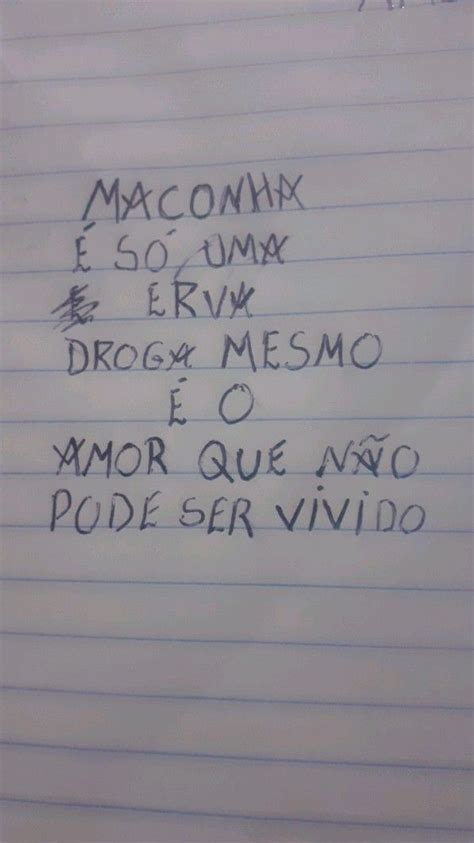 MACONHA
É SÓ UMA
ERVA
DROGA MESMO
É O
AMOR QUE NÃO
PODE SER VIVIDO